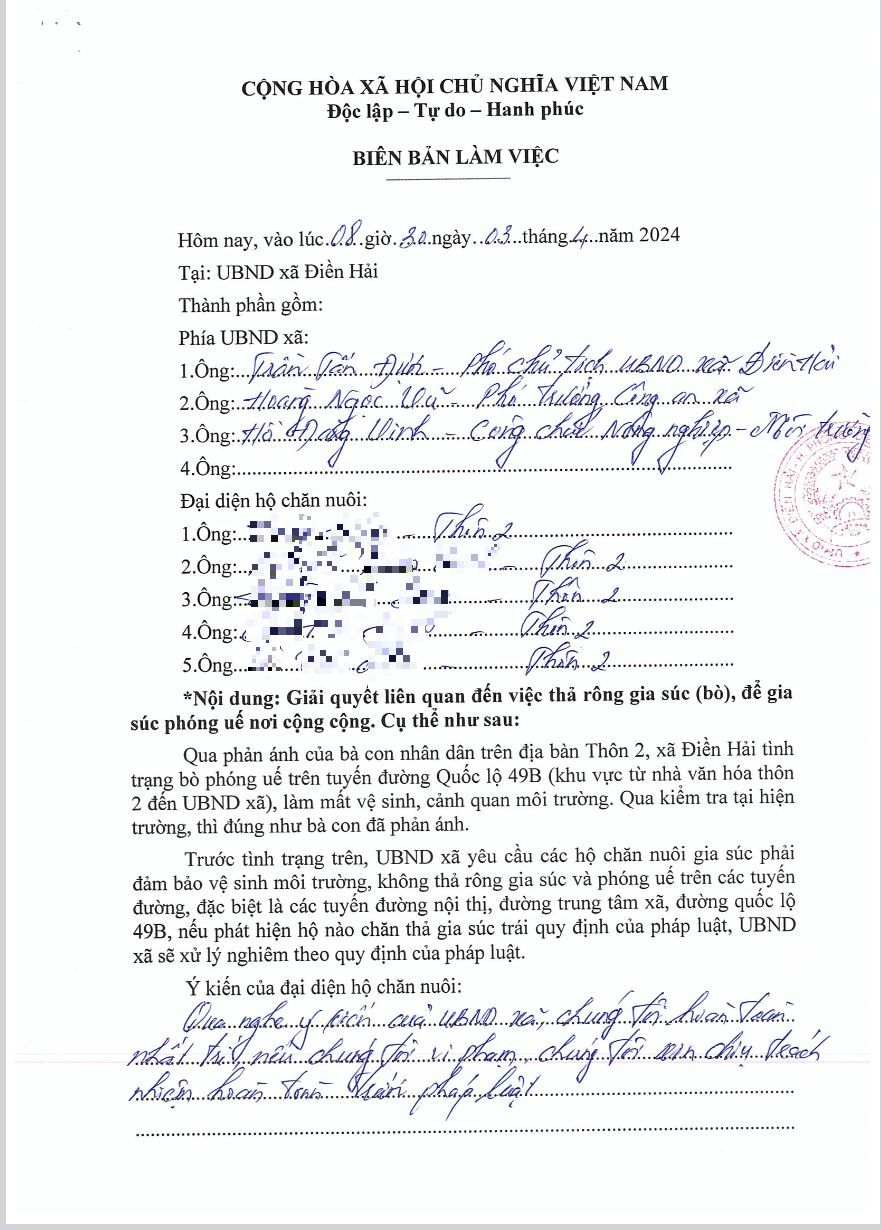 CỘNG HÒA XÃ HỘI CHỦ NGHĨA VIỆT NAM
Độc lập – Tự do – Hanh phúc
BIÊN BẢN LÀM VIỆC
Hôm nay, vào lúc 08 giờ 30 ngày 03 tháng 4 năm 2024
Tại: UBND xã Điền Hải
Thành phần gồm:
Phía UBND xã:
1.Ông: Trần Tấn Định – Phó chủ tịch UBND xã Điền Hải
2.Ông: Hoàng Ngọc Vũ – Phó trưởng Công an xã
3.Ông: Hồ Đăng Vinh – Công chức Nông nghiệp – Môi trường
4.Ông:
Đại diện hộ chăn nuôi:
1.Ông: – Thôn 2
2.Ông: – Thôn 2
3.Ông: – Thôn 2
4.Ông: – Thôn 2
5.Ông – Thôn 2
*Nội dung: Giải quyết liên quan đến việc thả rông gia súc (bò), để gia
súc phóng uế nơi cộng cộng. Cụ thể như sau:
Qua phản ánh của bà con nhân dân trên địa bàn Thôn 2, xã Điền Hải tình
trạng bò phóng uế trên tuyến đường Quốc lộ 49B (khu vực từ nhà văn hóa thôn
2 đến UBND xã), làm mất vệ sinh, cảnh quan môi trường. Qua kiểm tra tại hiện
trường, thì đúng như bà con đã phản ánh.
Trước tình trạng trên, UBND xã yêu cầu các hộ chăn nuôi gia súc phải
đảm bảo vệ sinh môi trường, không thả rông gia súc và phóng uế trên các tuyến
đường, đặc biệt là các tuyến đường nội thị, đường trung tâm xã, đường quốc lộ
49B, nếu phát hiện hộ nào chăn thả gia súc trái quy định của pháp luật, UBND
xã sẽ xử lý nghiêm theo quy định của pháp luật.
Ý kiến của đại diện hộ chăn nuôi:
Qua nghe ý kiến của UBND xã, chúng tôi hoàn toàn
nhất trí, nếu chúng tôi vi phạm, chúng tôi xin chịu trách
nhiệm hoàn toàn trước pháp luật